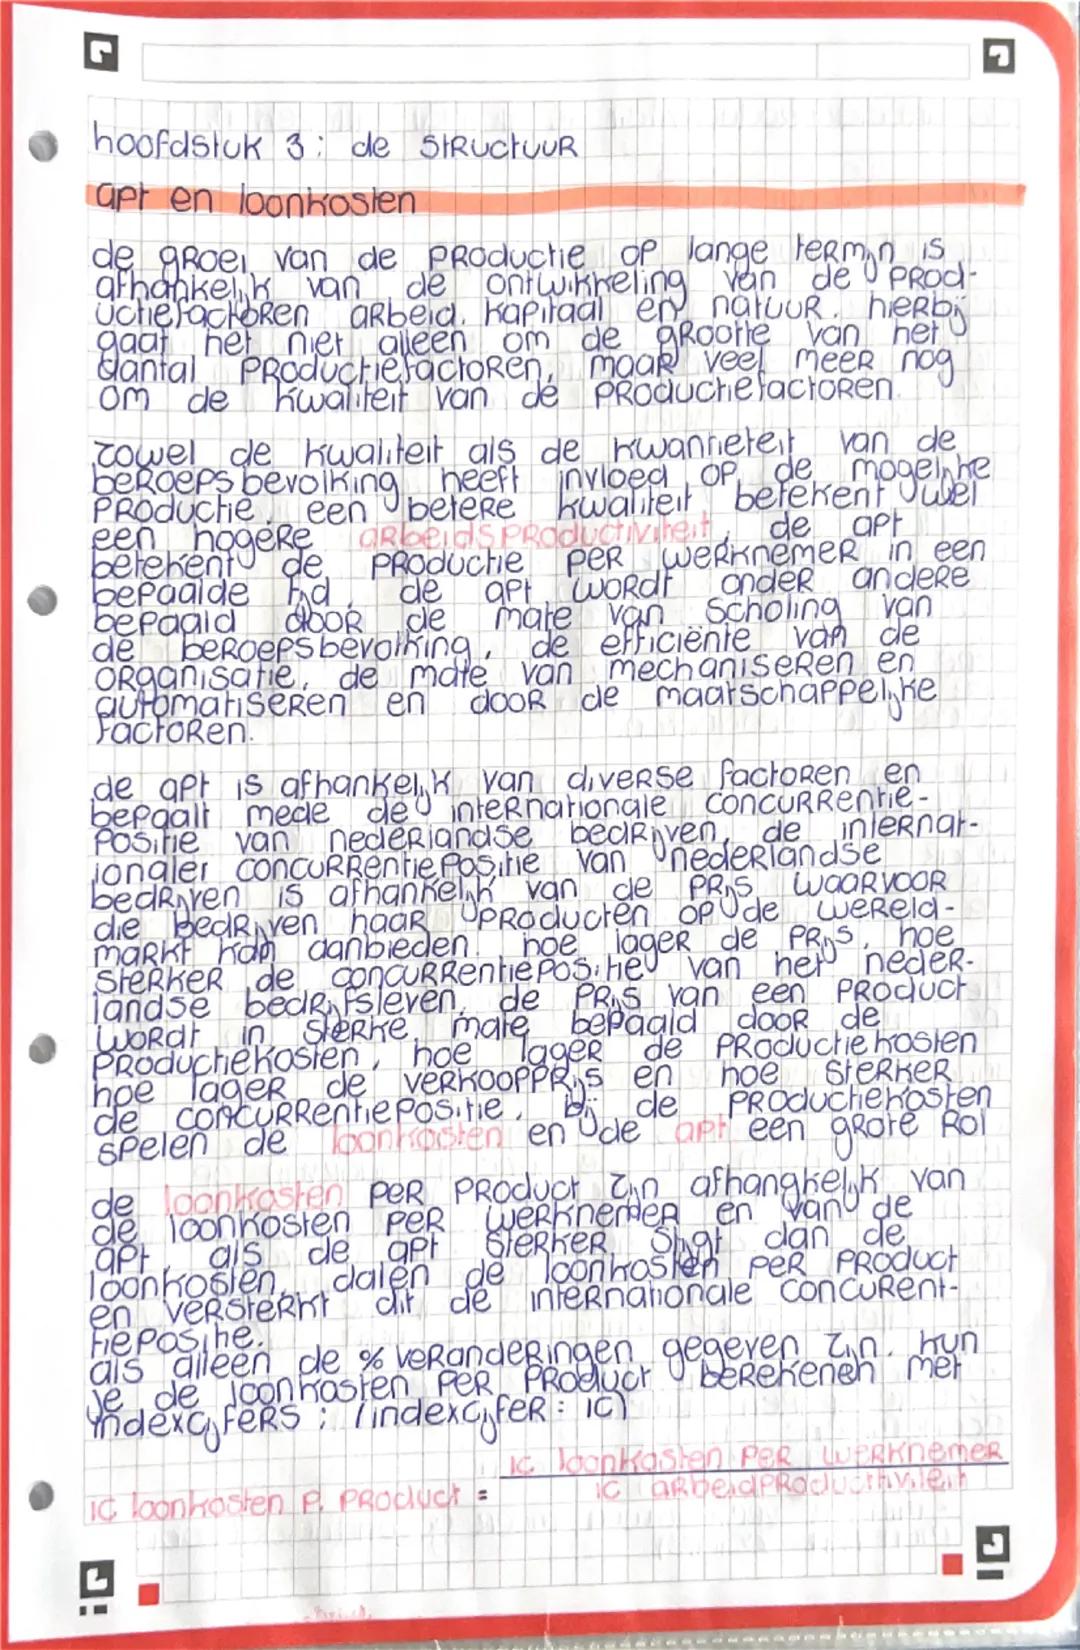 hoofdstuk 3: de structuur
apt en loonkosten
de groei van de productie op lange termijn is
afhankelijk van de ontwikkeling van de prod-
uctiefactoren arbeid, kapitaal en natuur. hierbij
gaat het niet alleen om de grootte van het
aantal productiefactoren, maar veel meer nog
om de kwaliteit van de productiefactoren.
zowel de kwaliteit als de kwantieteit van de
beroepsbevolking heeft invloed op de mogelijke
productie. een betere kwaliteit betekent wel
een hogere arbeidsproductiviteit. de apt
betekent de productie per werknemer in een
bepaalde tijd. de apt wordt onder andere
bepaald door de mate van scholing van
de beroepsbevolking, de efficiënte van de
organisatie, de mate van mechaniseren en
automatiseren en door de maatschappelijke
factoren.
de apt is afhankelijk van diverse factoren en
bepaalt mede de internationale concurrentie-
positie van nederlandse bedrijven. de internat-
ionaler concurrentiepositie van nederlandse
bedrijven is afhankelijk van de prijs waarvoor
die bedrijven haar producten op de wereld-
markt kan aanbieden. hoe lager de prijs, hoe
sterker de concurrentiepositie van het neder-
landse bedrijfsleven. de prijs van een product
wordt in sterke mate bepaald door de
productiekosten, hoe lager de productiekosten
hoe lager de verkoopprijs en hoe sterker
de concurrentiepositie. bij de productiekosten
spelen de loonkosten en de apt een grote rol
de loonkosten per product zijn afhangkelijk van
de loonkosten per werknemer en van de
apt. als de apt sterker stijgt dan de
loonkosten, dalen de loonkosten per product
en versterkt dit de internationale concurent-
tiepositie.
als alleen de % veranderingen gegeven zijn, kun
je de loonkosten per product berekenen met
indexcijfers: (indexcijfer: ic)
ic loonkosten per werknemer
ic loonkosten p. product =
ic arbeidproductiviteit